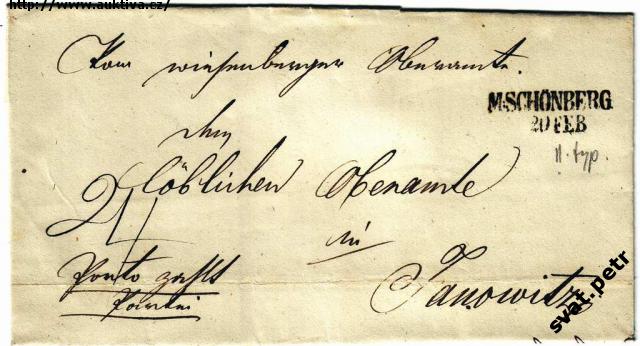 http://www.auktiva.cz/
Vom wiesenberger Oberamte.
M.SCHÖNBERG
20 FEB
II. typ.
dem
löblichen Oberamte
in
Porto zahlt
Partei
Janowitz
svat.petr